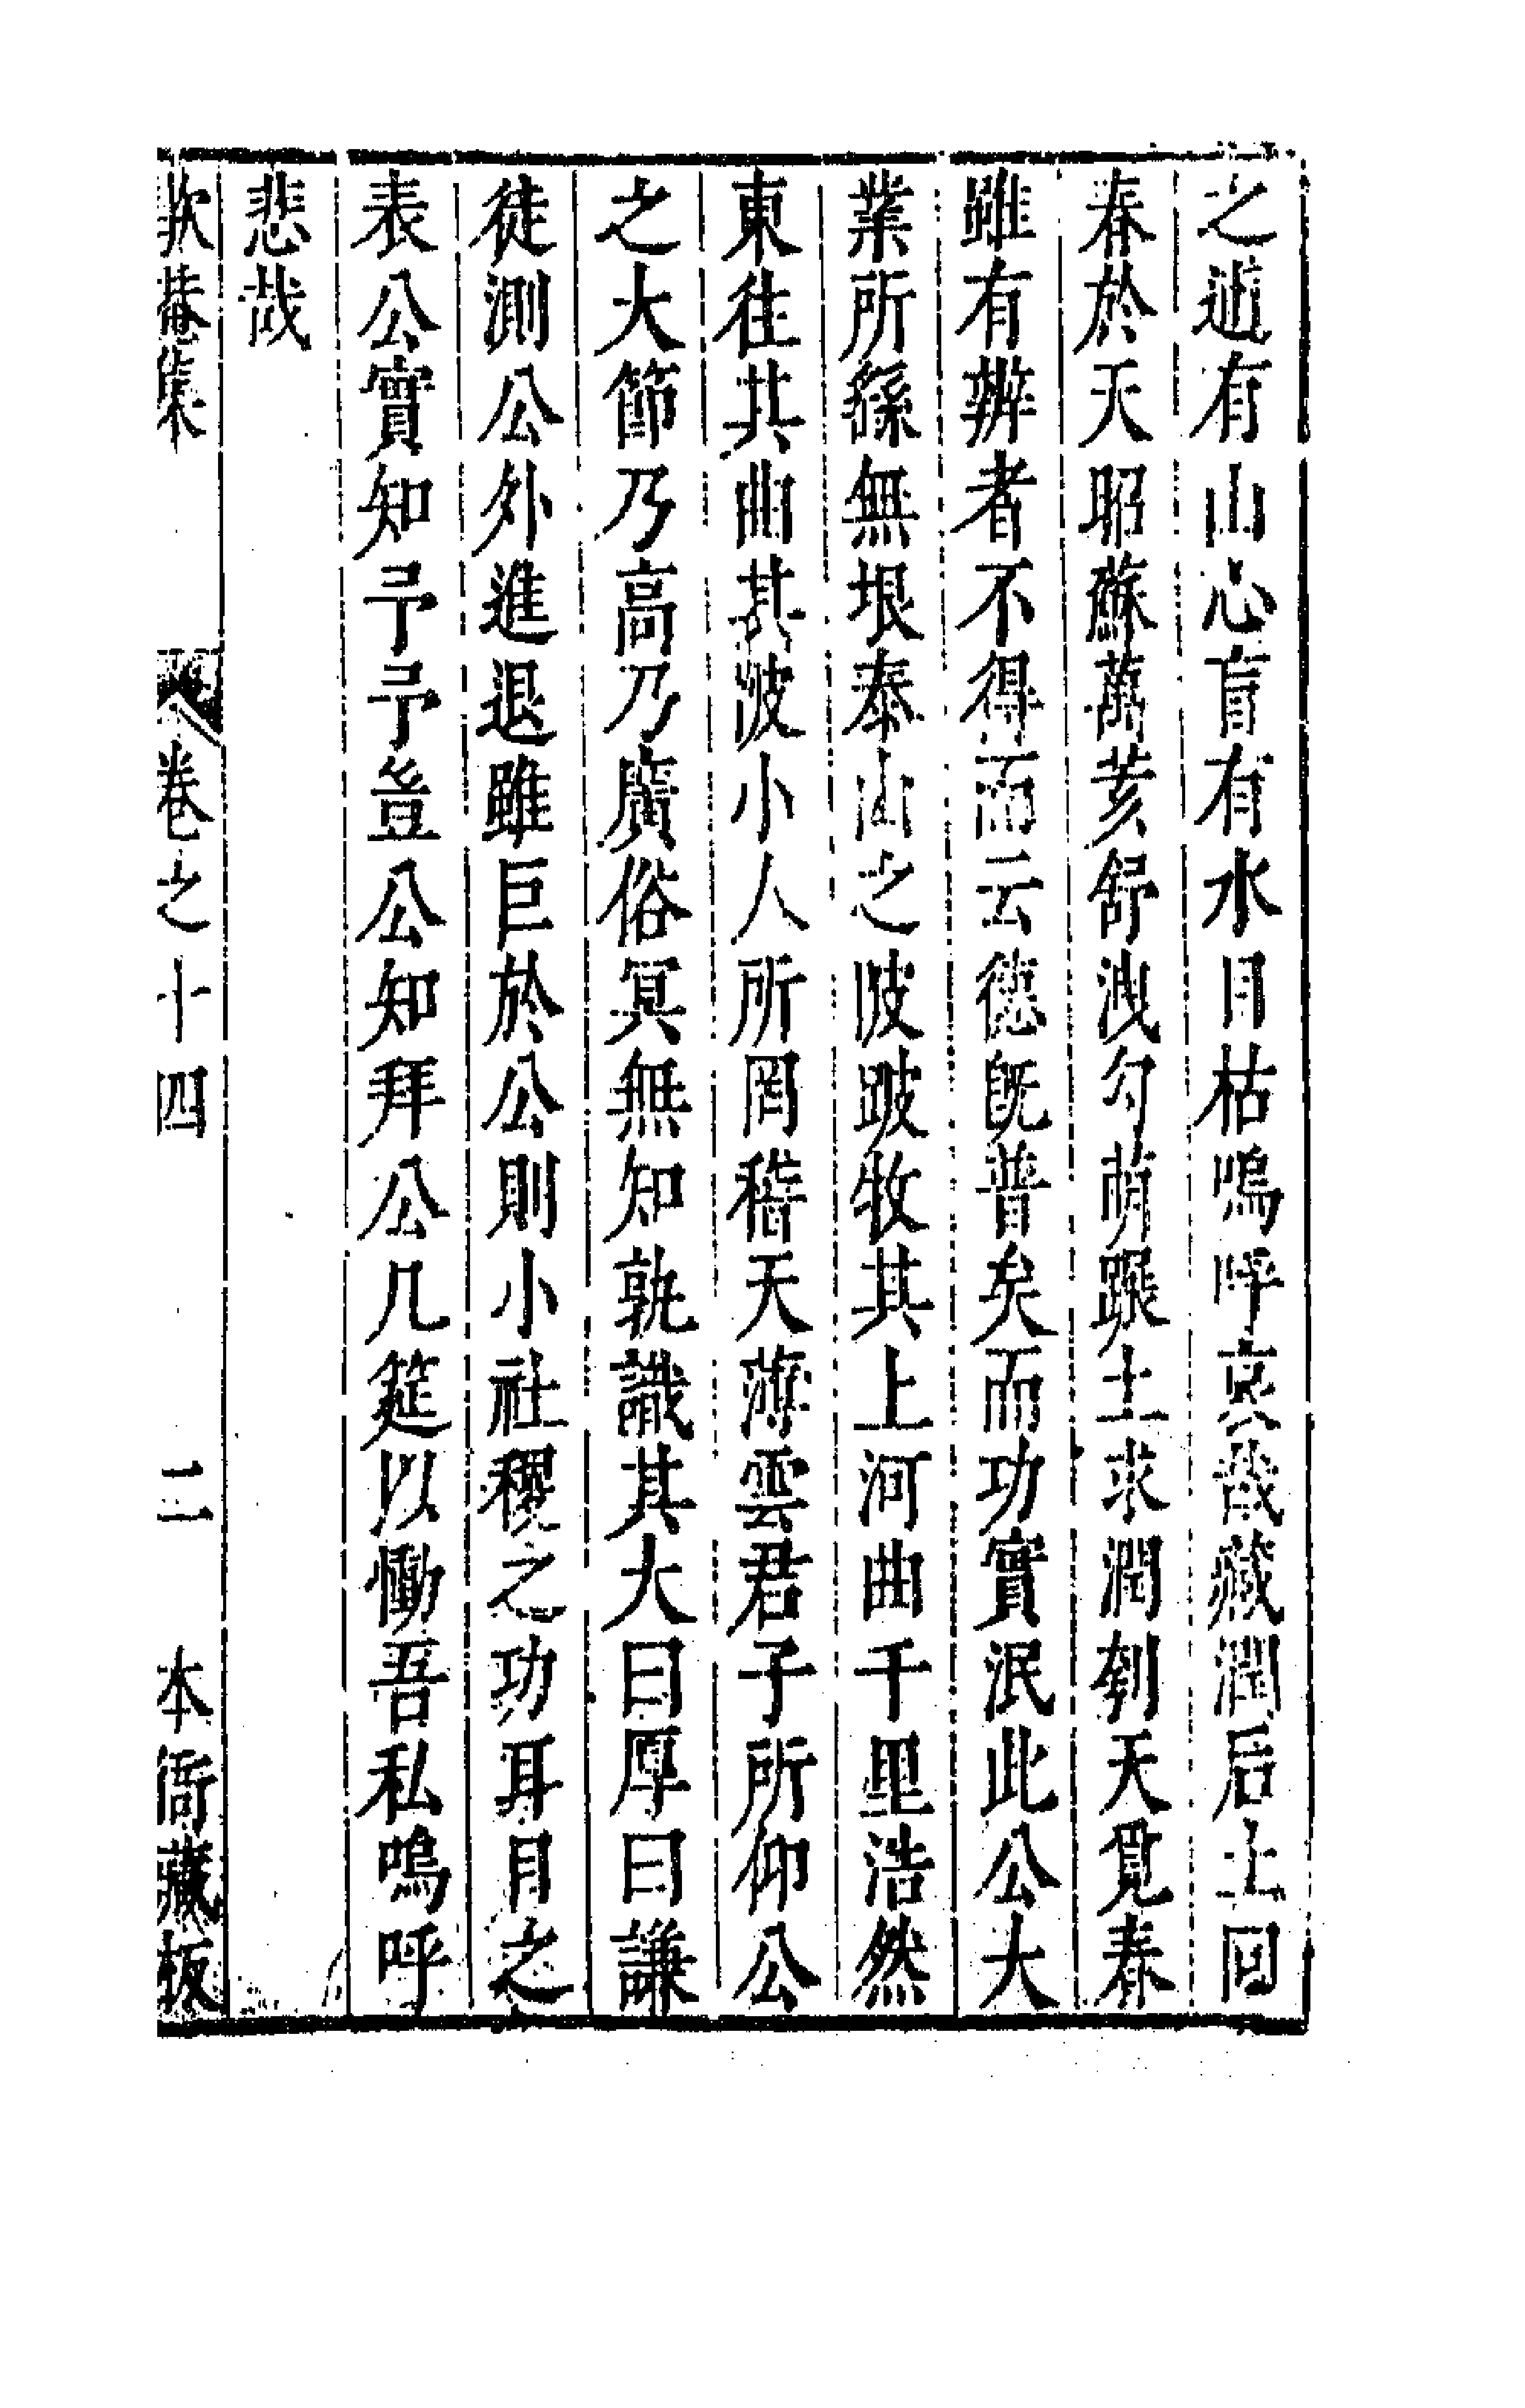 之逝有山心盲有水目枯嗚呼哀哉藏潤后土回
春於天昭蘇萬荄舒洩勾萌躁土求潤刳天覓春
雖有辨者不得而云德旣普矣而功實泯此公大
業所繇無垠泰山之陂跛牧其上河曲千里浩然
東往其曲其波小人所罔稽天薄雲君子所仰公
之大節乃高乃廣俗冥無知孰識其大曰厚曰謙
徒測公外進退雖巨於公則小社稷之功耳目之
表公實知予予豈公知拜公几筵以慟吾私嗚呼
悲哉
歇菴集 卷之十四 二 本衙藏板